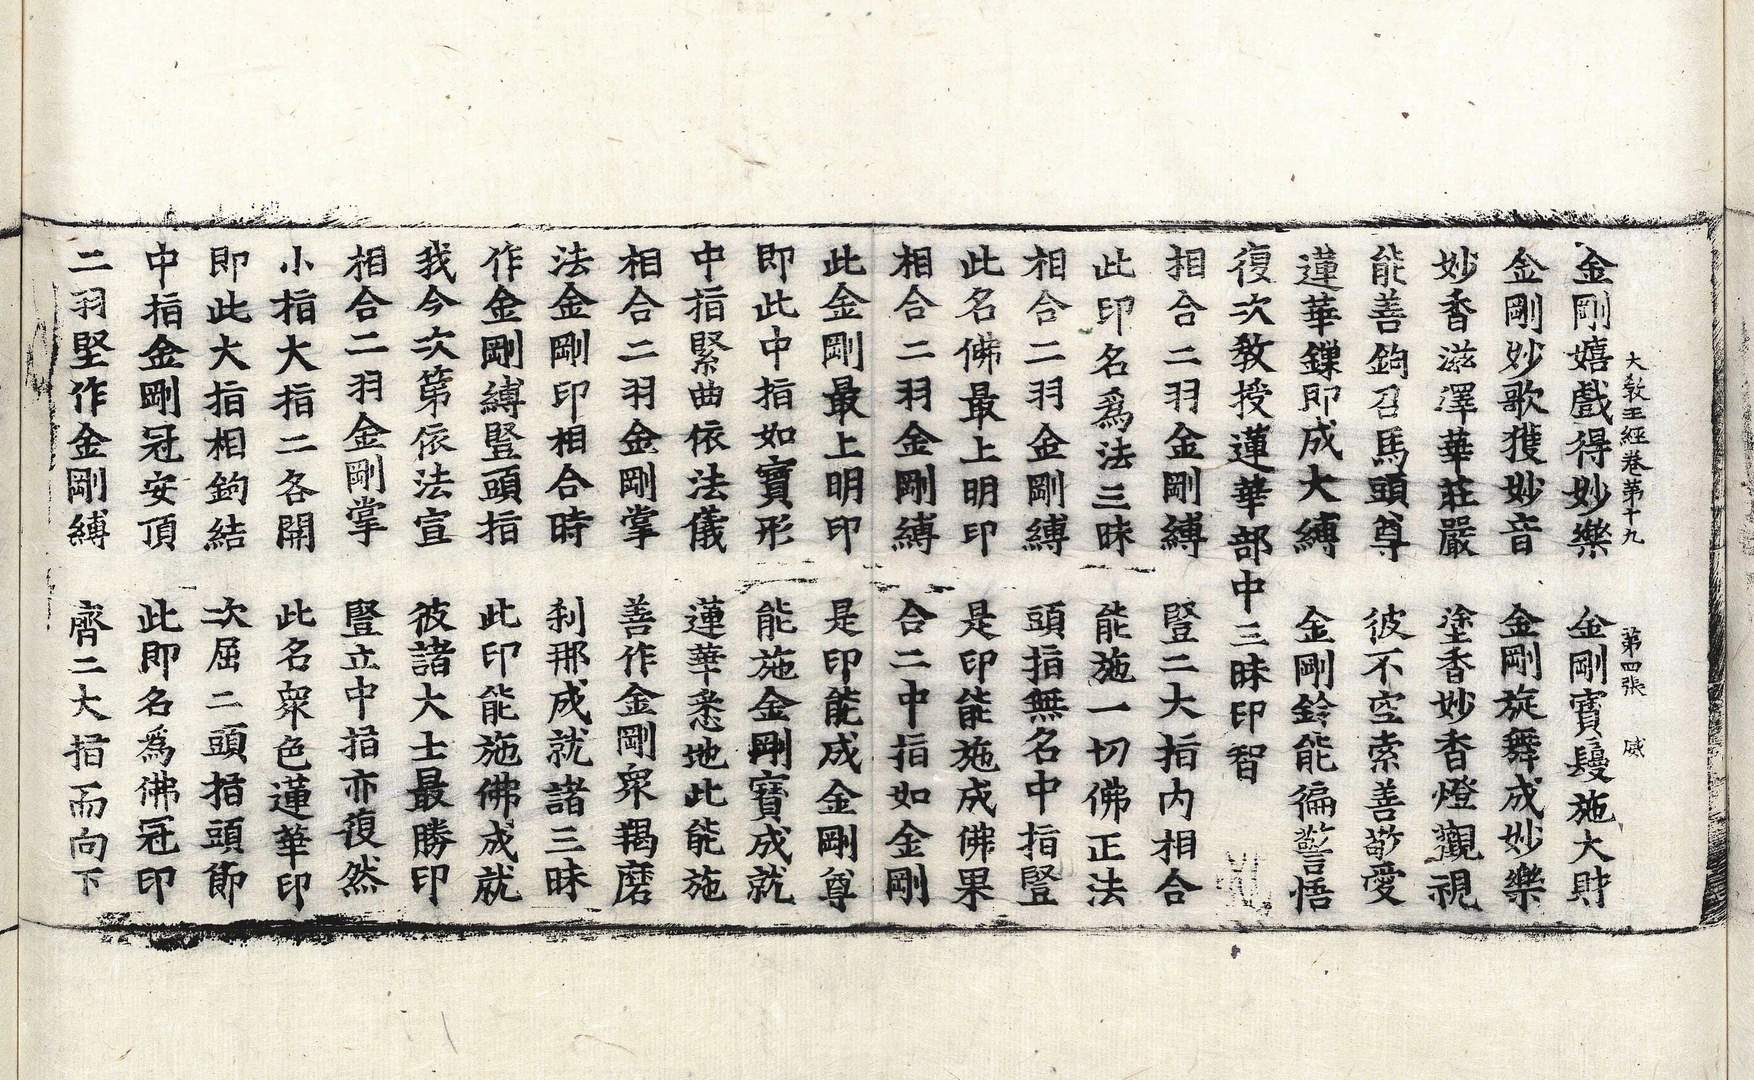 大教王經卷第十九　第四張　咸
金剛嬉戲得妙樂　金剛寶鬘施大財
金剛妙歌獲妙音　金剛旋舞成妙樂
妙香滋澤華莊嚴　塗香妙香燈觀視
能善鉤召馬頭尊　彼不空索善敬愛
蓮華鏁即成大縛　金剛鈴能徧警悟
復次教授蓮華部中三昧印智
相合二羽金剛縛　豎二大指內相合
此印名爲法三昧　能施一切佛正法
相合二羽金剛縛　頭指無名中指豎
此名佛最上明印　是印能施成佛果
相合二羽金剛縛　合二中指如金剛
此金剛最上明印　是印能成金剛尊
即此中指如寶形　能施金剛寶成就
中指緊曲依法儀　蓮華悉地此能施
相合二羽金剛掌　善作金剛眾羯磨
法金剛印相合時　剎那成就諸三昧
作金剛縛豎頭指　此印能施佛成就
我今次第依法宣　彼諸大士最勝印
相合二羽金剛掌　豎立中指亦復然
小指大指二各開　此名眾色蓮華印
即此大指相鉤結　次屈二頭指頭節
中指金剛冠安頂　此即名爲佛冠印
二羽堅作金剛縛　齊二大指而向下